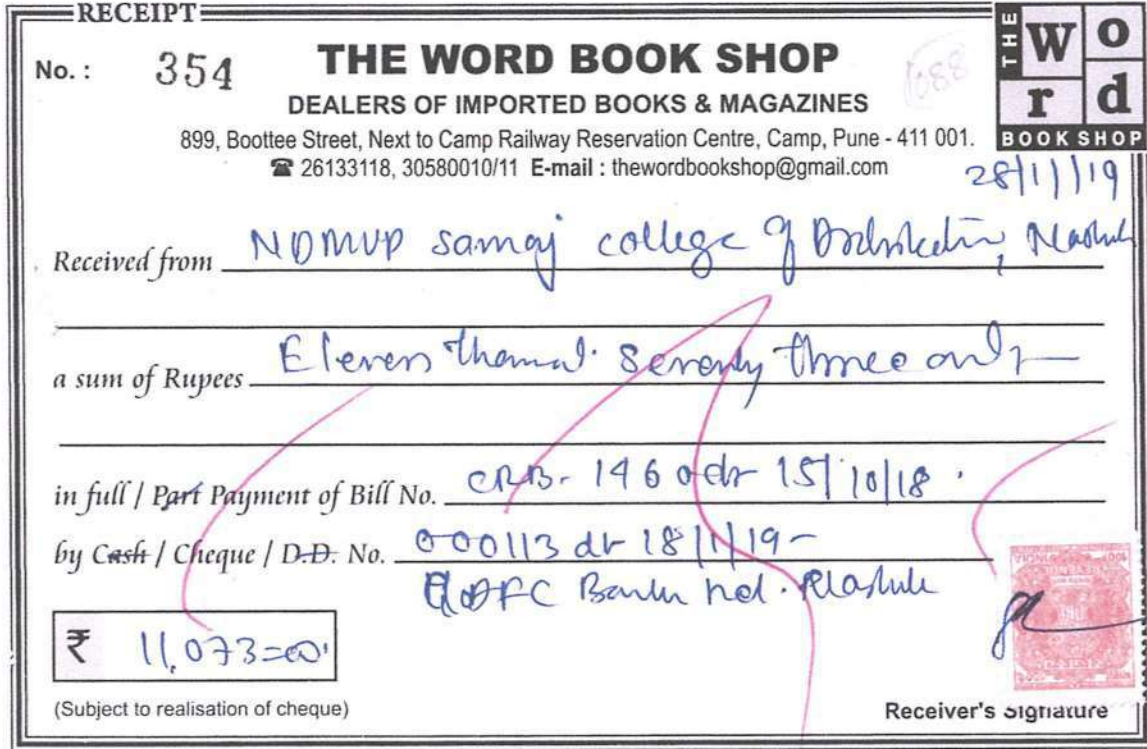 RECEIPT
No. : 354
THE WORD BOOK SHOP
DEALERS OF IMPORTED BOOKS & MAGAZINES
899, Boottee Street, Next to Camp Railway Reservation Centre, Camp, Pune - 411 001.
☎ 26133118, 30580010/11 E-mail : thewordbookshop@gmail.com
THE Word BOOK SHOP
28/1/19
Received from NDMVP samaj college of
a sum of Rupees Eleven seventy three only
in full / Part Payment of Bill No. CRB- 146 dr 15/10/18.
by Cash / Cheque / D.D. No. 000113 dr 18/1/19-
HDFC Bank
₹ 11,073=00
(Subject to realisation of cheque)
Receiver's Signature